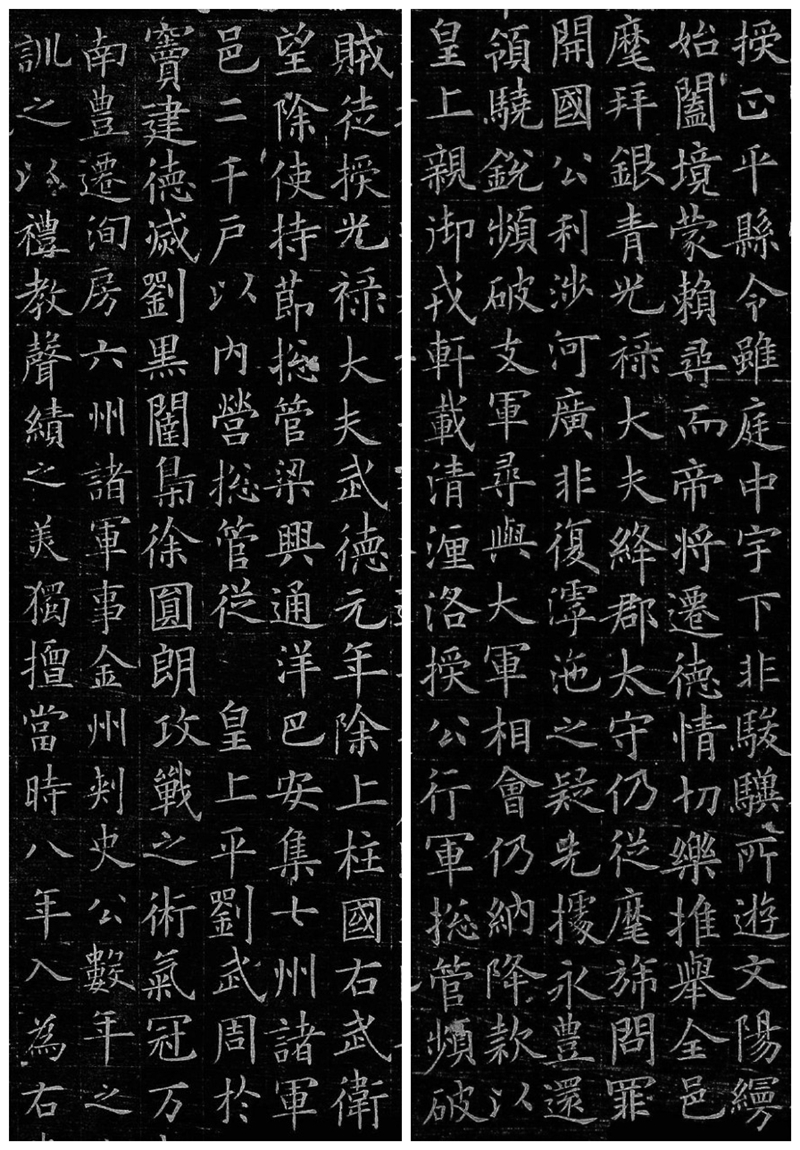 授正平縣令雖庭中宇下非駿驥所遊文陽縵
始闔境蒙賴尋而帝將遷德情切樂推舉全邑
麾拜銀青光祿大夫絳郡太守仍從麾旆問罪
開國公利涉河廣非復澤沲之疑先據永豐還
領驍銳頻破支軍尋與大軍相會仍納降款以
皇上親御戎軒載清瀍洛授公行軍揔管頻破
賊徒授光祿大夫武德元年除上柱國右武衛
望除使持節揔管梁興通洋巴安集七州諸軍
邑二千戶以內營揔管從 皇上平劉武周於
竇建德滅劉黑闥梟徐圓朗攻戰之術氣冠万
南豊遷洵房六州諸軍事金州刺史公數年之
訓之以禮教聲績之美獨擅當時八年入為右